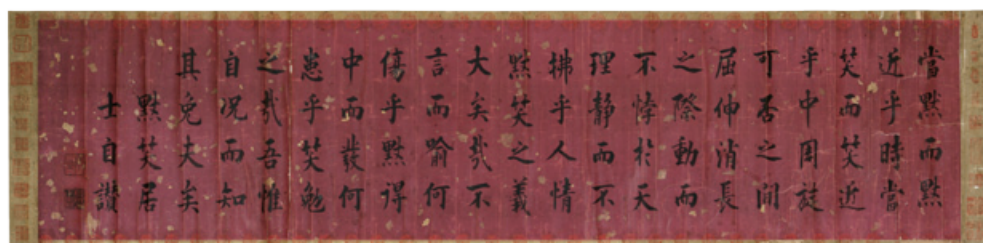 當默而默
近乎時當
笑而笑近
乎中周旋
可否之間
屈伸消長
之際動而
不悖於天
理静而不
拂乎人情
默笑之義
大矣哉不
言而喻何
傷乎默得
中而發何
患乎笑勉
之哉吾惟
自况而知
其免夫矣
默笑居
士自讚